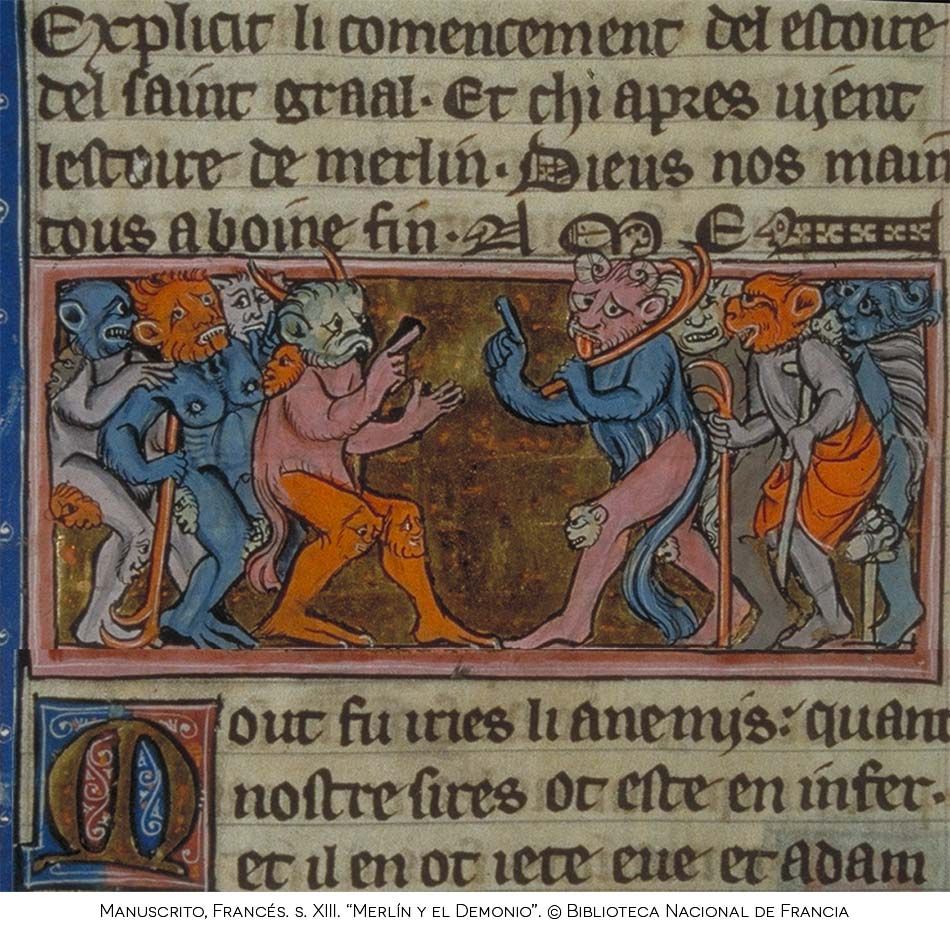 Explicit li comencement del estoire
del saint graal. Et chi apres uient
lestoire de merlin. Dieus nos main
tous a boine fin. A M E N
Mout fu iries li anemis: quant
nostre sires ot este en infer.
et il en ot iete eue et adam
MANUSCRITO, FRANCÉS. S. XIII. “MERLÍN Y EL DEMONIO”. © BIBLIOTECA NACIONAL DE FRANCIA